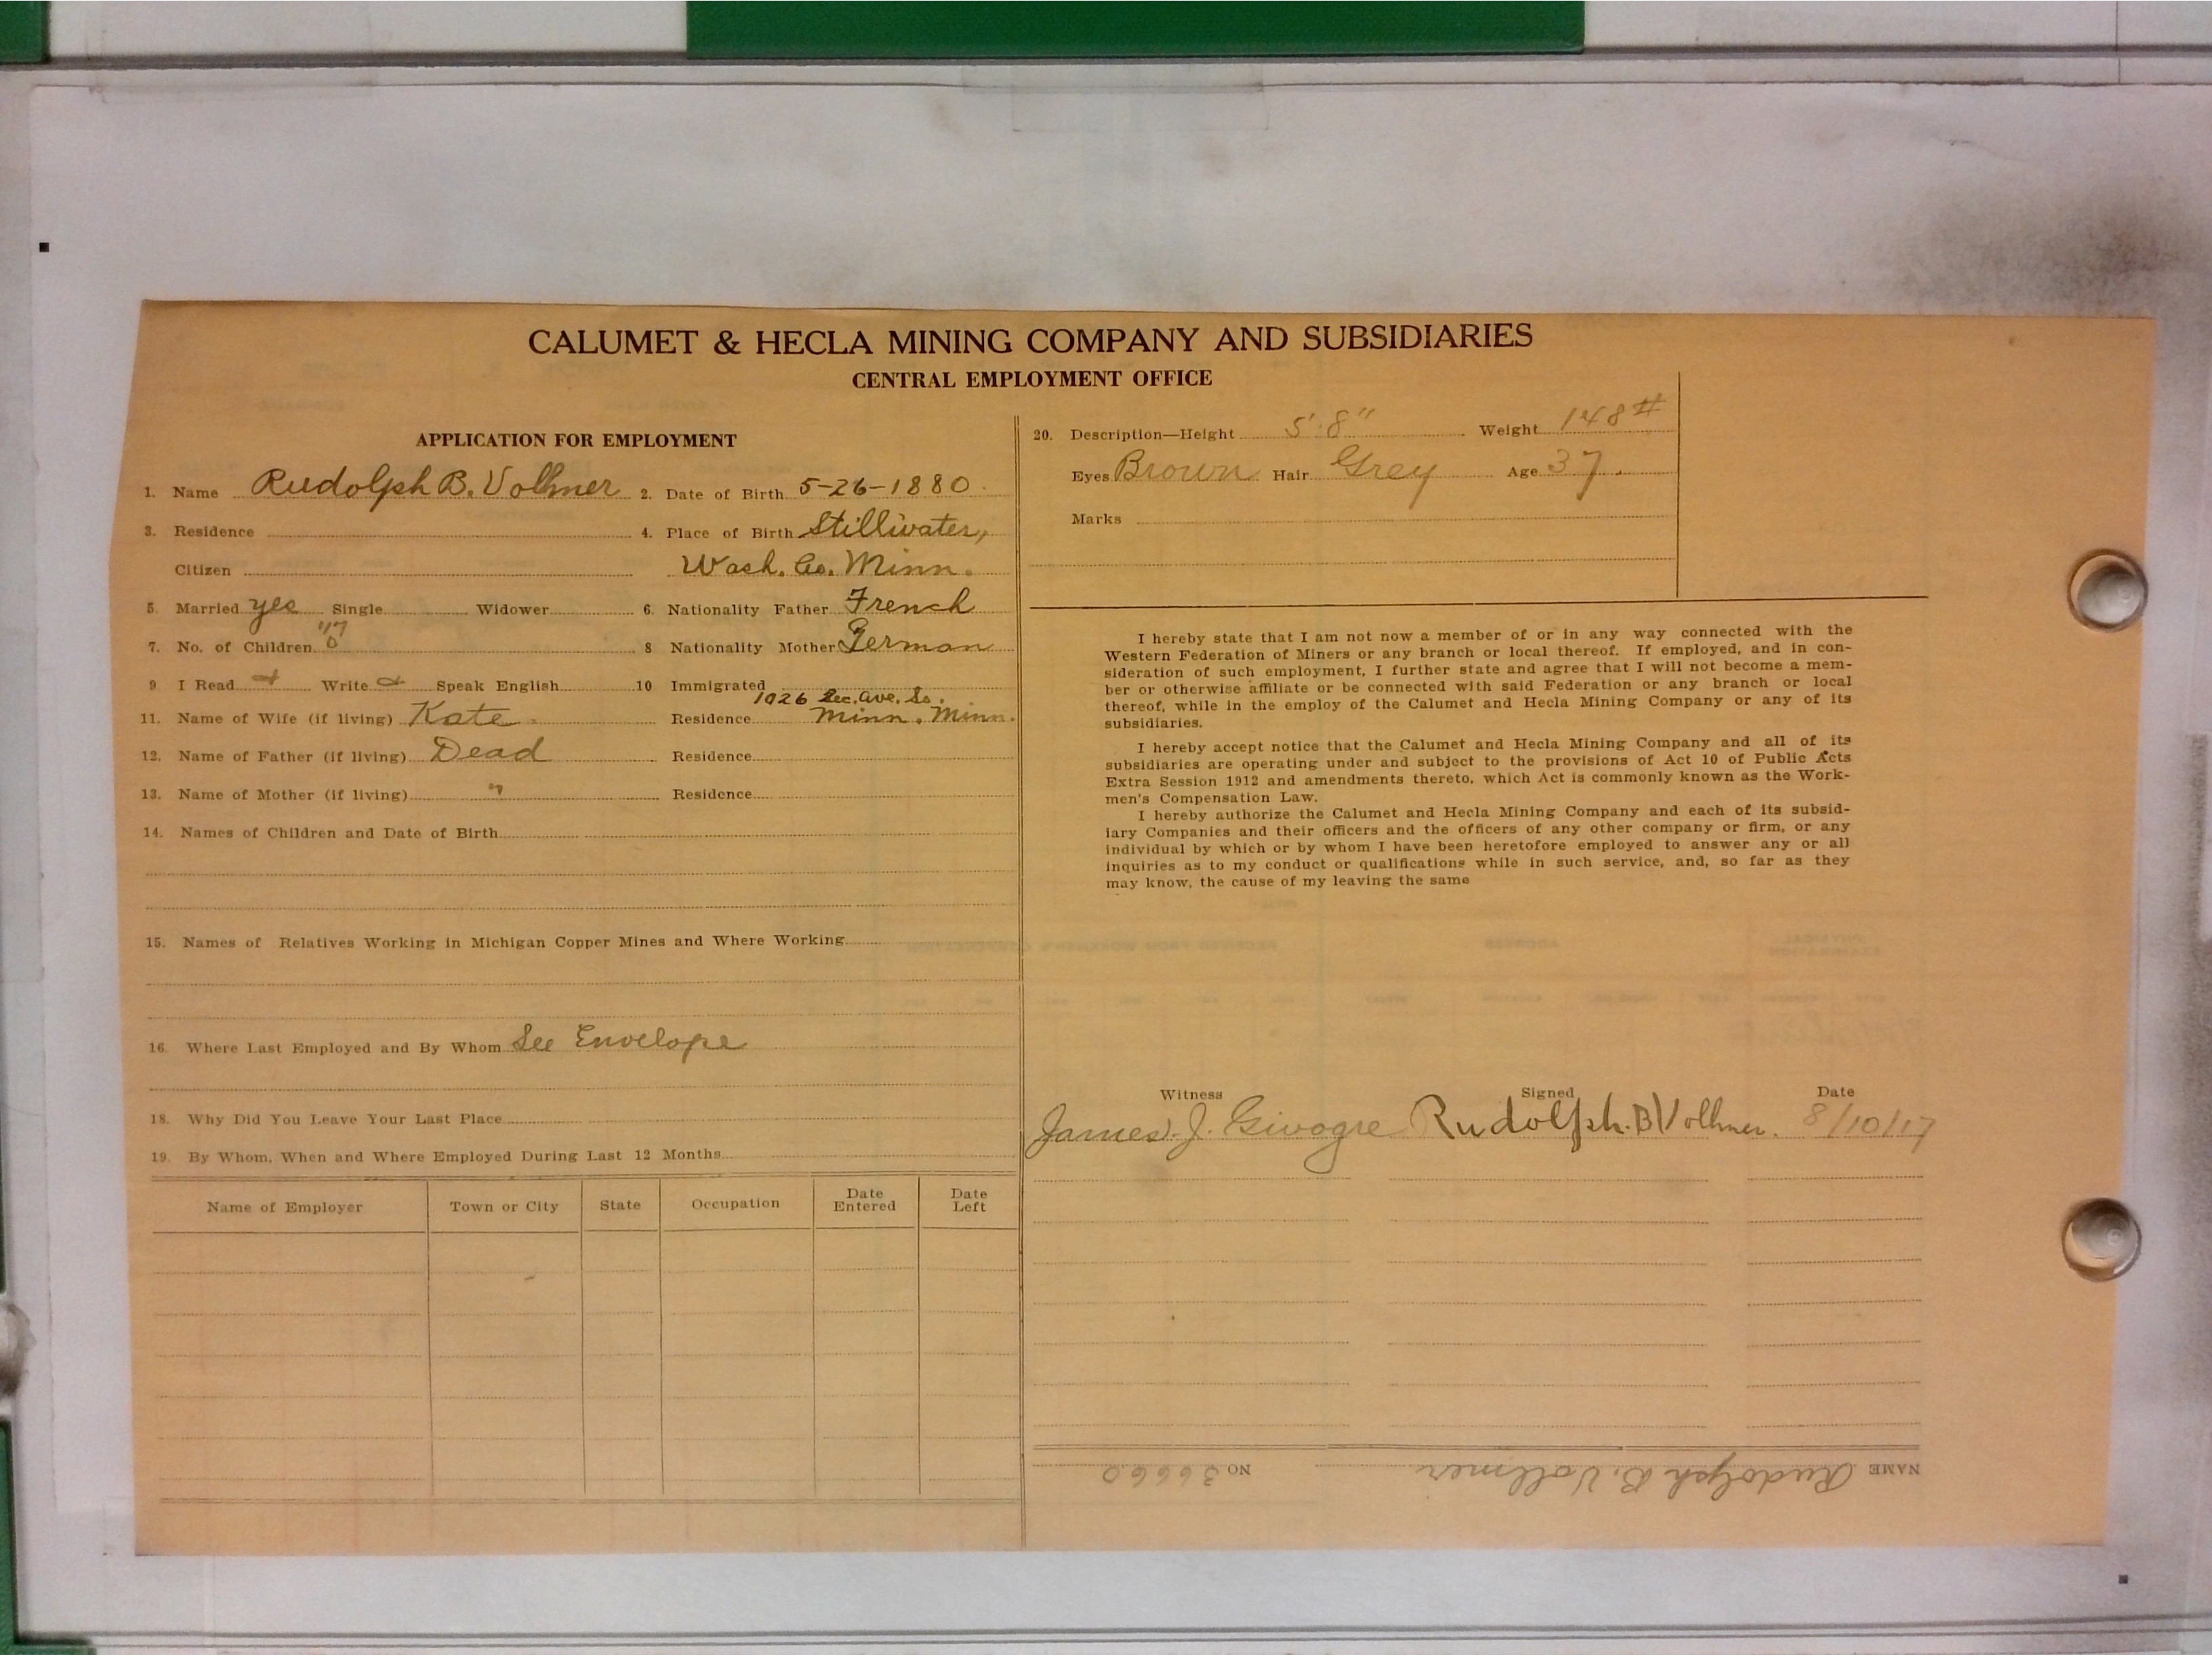 CALUMET & HECLA MINING COMPANY AND SUBSIDIARIES
CENTRAL EMPLOYMENT OFFICE
APPLICATION FOR EMPLOYMENT
1. Name Rudolph B. Vollmer 2. Date of Birth 5-26-1880
3. Residence 4. Place of Birth Stillwater,
Citizen Wash. Co. Minn.
5. Married yes Single Widower 6. Nationality Father French
7. No. of Children 0 8 Nationality Mother German
9 I Read Write Speak English 10 Immigrated
1026 Sec. Ave. So.
11. Name of Wife (if living) Kate Residence Minn. Minn.
12. Name of Father (if living) Dead Residence
13. Name of Mother (if living) " Residence
14. Names of Children and Date of Birth
15. Names of Relatives Working in Michigan Copper Mines and Where Working
16. Where Last Employed and By Whom See Envelope
18. Why Did You Leave Your Last Place
19. By Whom, When and Where Employed During Last 12 Months
Name of Employer Town or City State Occupation Date Entered Date Left
20. Description—Height 5' 8" Weight 148#
Eyes Brown Hair Grey Age 37.
Marks
I hereby state that I am not now a member of or in any way connected with the
Western Federation of Miners or any branch or local thereof. If employed, and in con-
sideration of such employment, I further state and agree that I will not become a mem-
ber or otherwise affiliate or be connected with said Federation or any branch or local
thereof, while in the employ of the Calumet and Hecla Mining Company or any of its
subsidiaries.
I hereby accept notice that the Calumet and Hecla Mining Company and all of its
subsidiaries are operating under and subject to the provisions of Act 10 of Public Acts
Extra Session 1912 and amendments thereto, which Act is commonly known as the Work-
men's Compensation Law.
I hereby authorize the Calumet and Hecla Mining Company and each of its subsid-
iary Companies and their officers and the officers of any other company or firm, or any
individual by which or by whom I have been heretofore employed to answer any or all
inquiries as to my conduct or qualifications while in such service, and, so far as they
may know, the cause of my leaving the same
Witness Signed Date
James J. Givogre Rudolph. B Vollmer. 8/10/17
NAME Rudolph B. Vollmer NO 36660